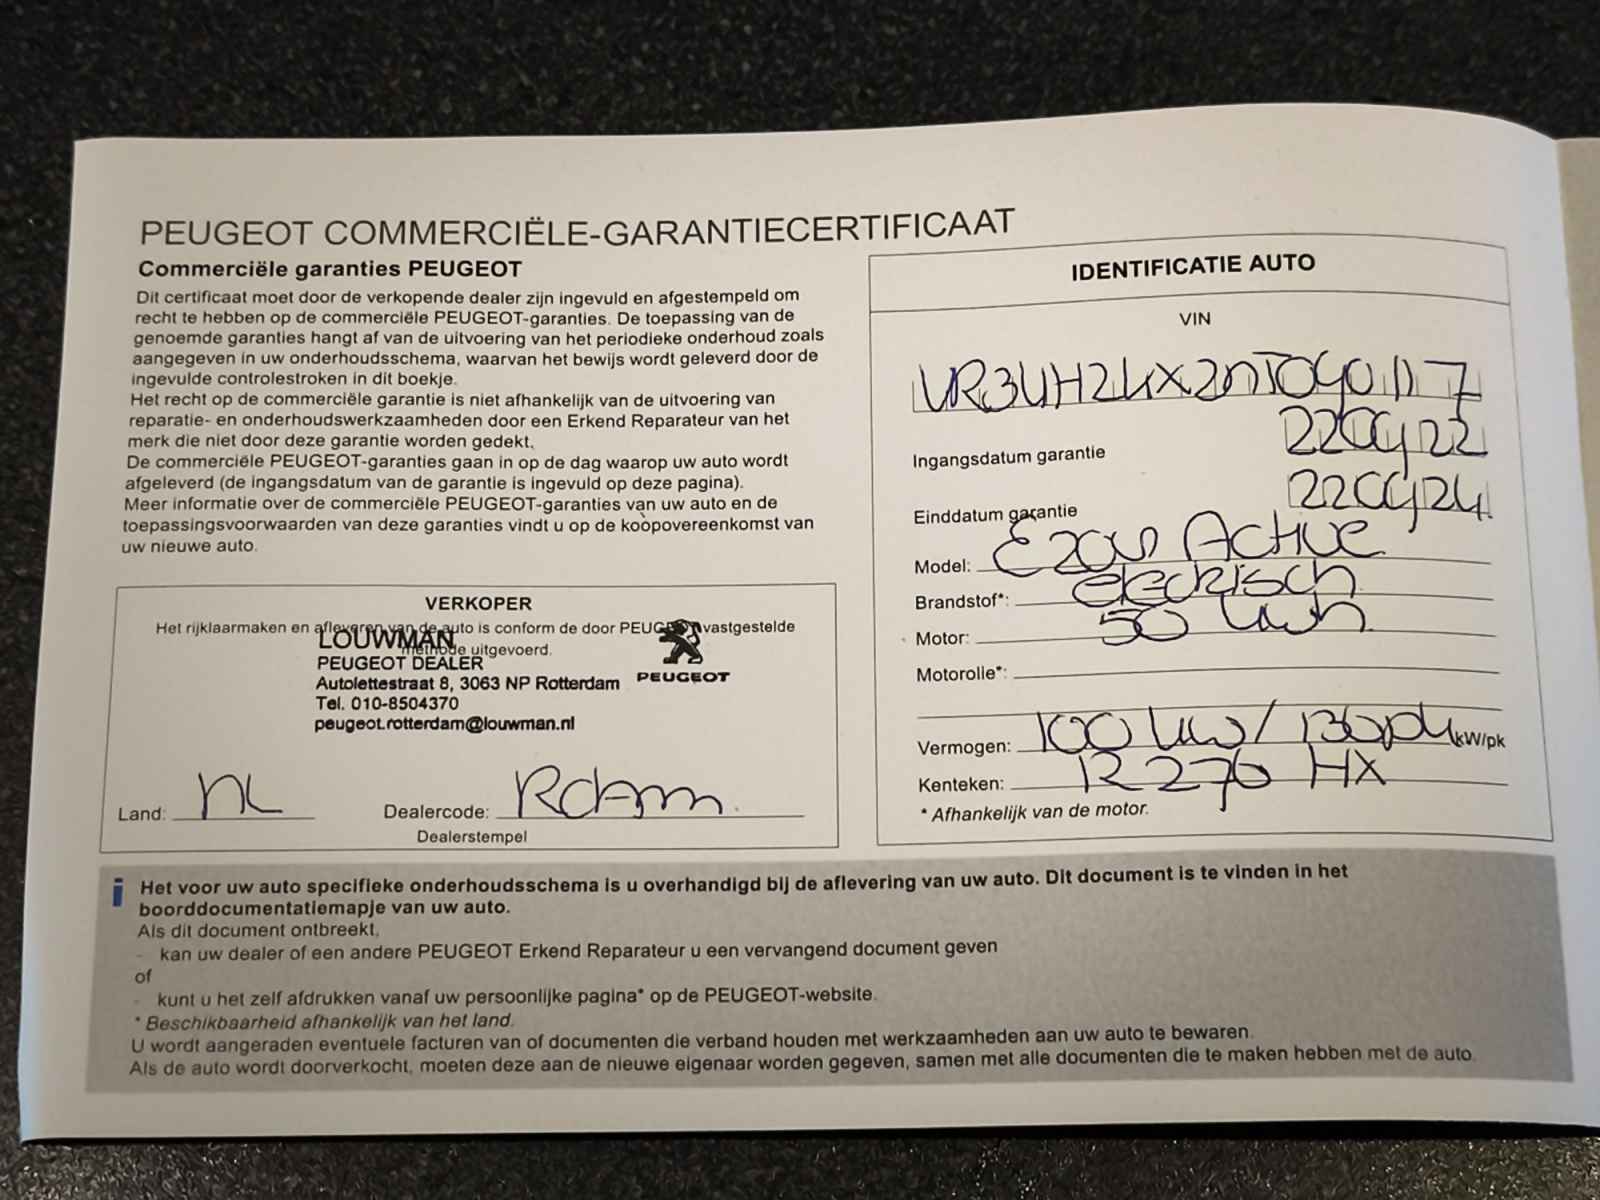 PEUGEOT COMMERCIËLE-GARANTIECERTIFICAAT
Commerciële garanties PEUGEOT
Dit certificaat moet door de verkopende dealer zijn ingevuld en afgestempeld om
recht te hebben op de commerciële PEUGEOT-garanties. De toepassing van de
genoemde garanties hangt af van de uitvoering van het periodieke onderhoud zoals
aangegeven in uw onderhoudsschema, waarvan het bewijs wordt geleverd door de
ingevulde controlestroken in dit boekje.
Het recht op de commerciële garantie is niet afhankelijk van de uitvoering van
reparatie- en onderhoudswerkzaamheden door een Erkend Reparateur van het
merk die niet door deze garantie worden gedekt.
De commerciële PEUGEOT-garanties gaan in op de dag waarop uw auto wordt
afgeleverd (de ingangsdatum van de garantie is ingevuld op deze pagina).
Meer informatie over de commerciële PEUGEOT-garanties van uw auto en de
toepassingsvoorwaarden van deze garanties vindt u op de koopovereenkomst van
uw nieuwe auto.
VERKOPER
Het rijklaarmaken en afleveren van de auto is conform de door PEUGEOT vastgestelde
methode uitgevoerd.
LOUWMAN
PEUGEOT DEALER
Autolettestraat 8, 3063 NP Rotterdam
Tel. 010-8504370
peugeot.rotterdam@louwman.nl
PEUGEOT
Land: NL
Dealercode: Rdam
Dealerstempel
IDENTIFICATIE AUTO
VIN
Ingangsdatum garantie 220922
Einddatum garantie 220924
Model: E208 Active
Brandstof*: elektrisch
Motor: 50 kwh
Motorolie*:
Vermogen: 100 kw / 136pk kW/pk
Kenteken: R 276 HX
* Afhankelijk van de motor.
i Het voor uw auto specifieke onderhoudsschema is u overhandigd bij de aflevering van uw auto. Dit document is te vinden in het
boorddocumentatiemapje van uw auto.
Als dit document ontbreekt,
- kan uw dealer of een andere PEUGEOT Erkend Reparateur u een vervangend document geven
of
- kunt u het zelf afdrukken vanaf uw persoonlijke pagina* op de PEUGEOT-website.
* Beschikbaarheid afhankelijk van het land.
U wordt aangeraden eventuele facturen van of documenten die verband houden met werkzaamheden aan uw auto te bewaren.
Als de auto wordt doorverkocht, moeten deze aan de nieuwe eigenaar worden gegeven, samen met alle documenten die te maken hebben met de auto.